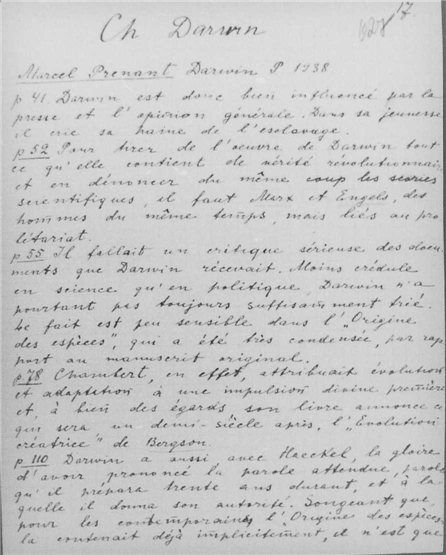 17.
Ch Darwin
Marcel Prenant Darwin P 1938
p 41. Darwin est donc bien influencé par la
presse et l'opinion générale. Dans sa jeunesse
il crie sa haine de l'esclavage.
p 52 Pour tirer de l'oeuvre de Darwin tout
ce qu'elle contient de vérité révolutionnaire
et en dénoncer du même coup les scories
scientifiques, il faut Marx et Engels, des
hommes du même temps, mais liés au pro
létariat.
p 55 Il fallait un critique sérieuse des docu
ments que Darwin récevait. Moins crédule
en science qu'en politique, Darwin n'a
pourtant pas toujours suffisamment trié.
Le fait est peu sensible dans l'"Origine
des espèces", qui a été très condensée, par rap
port au manuscrit original.
p. 78 Chambert, en effet, attribuait évolution
et adaptation à une impulsion divine première
et, à bien des égards son livre annonce ce
qui sera un demi-siècle après, l'"Évolution
créatrice" de Bergson.
p 110 Darwin a aussi avec Haeckel, la gloire
d'avoir prononcé la parole attendue, parole
qu'il prépara trente ans durant, et à la
quelle il donna son autorité. Songeant que,
pour les contemporains, l'"Origine des espèces"
la contenait déjà implicitement, il n'est que